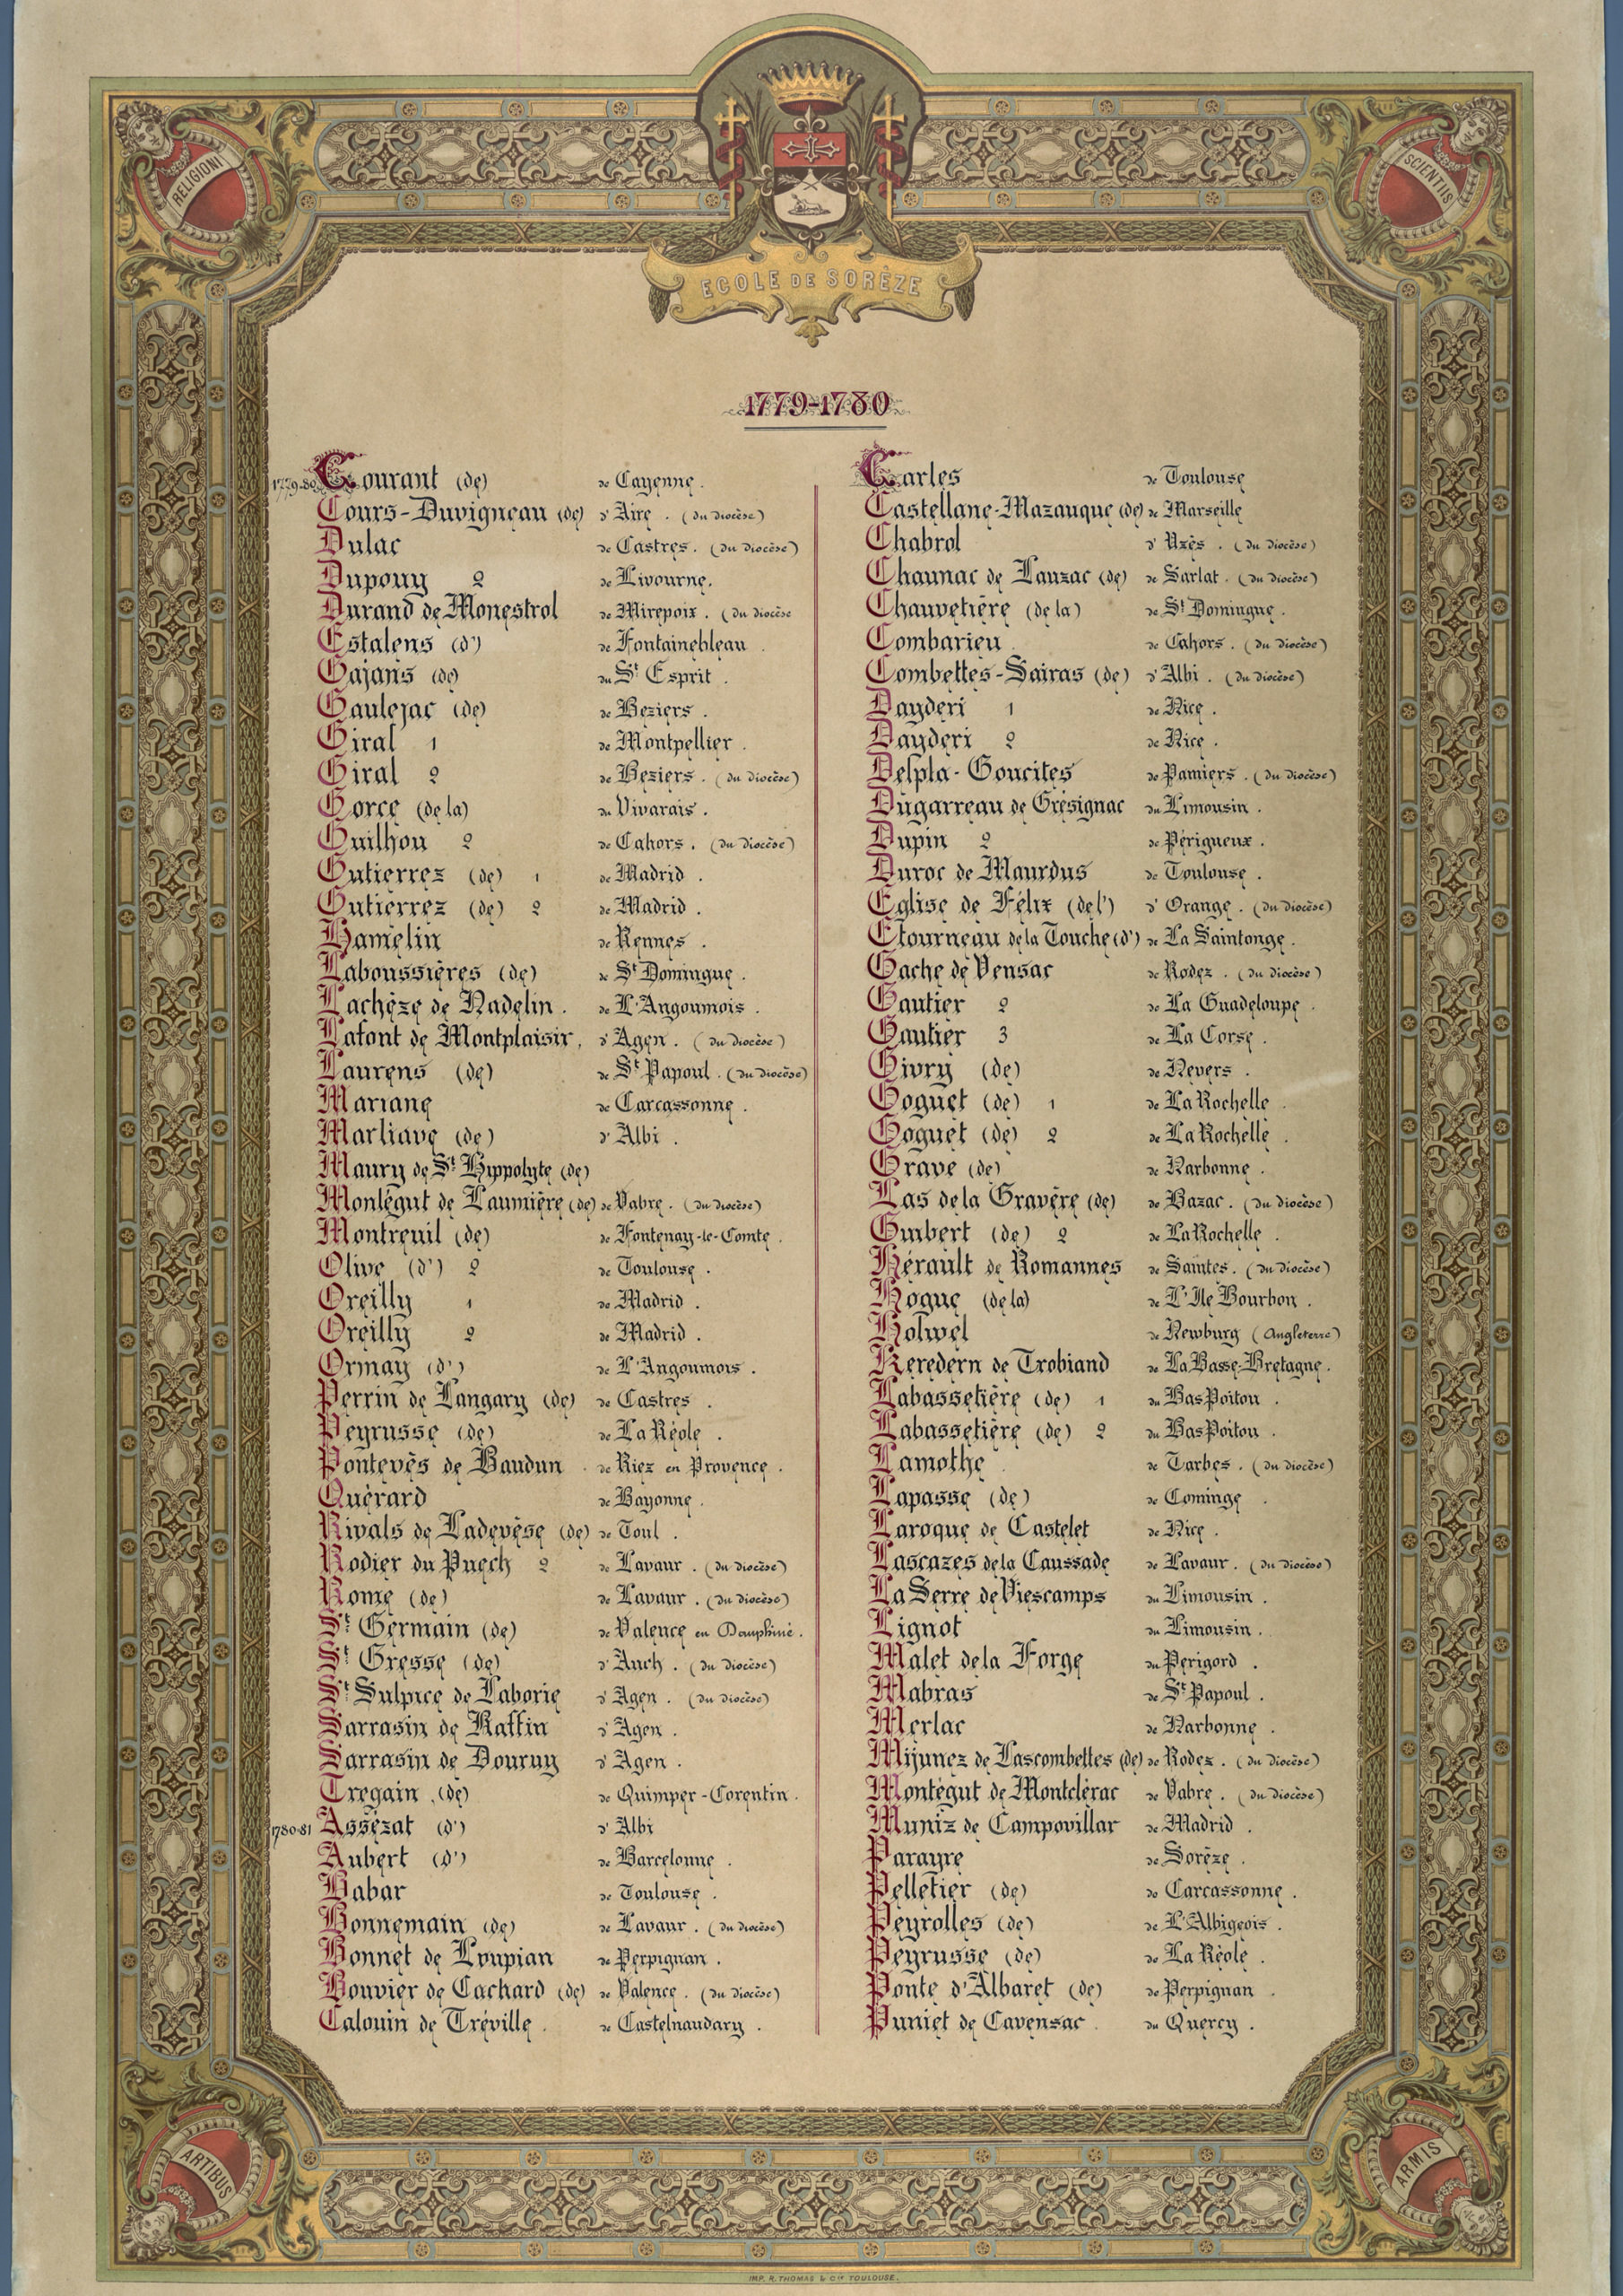 RELIGIONI
SCIENTIIS
ECOLE DE SORÈZE
1779-1780
1779-80 Courant (de) de Cayenne.
Cours-Duvigneau (de) d'Aire. (du diocèse)
Dulac de Castres. (du diocèse)
Dupouy 2 de Livourne.
Durand de Monestrol de Mirepoix. (du diocèse
Estalens (d') de Fontainebleau.
Gajans (de) du St Esprit.
Gaulejac (de) de Beziers.
Giral 1 de Montpellier.
Giral 2 de Beziers. (du diocèse)
Gorce (de la) du Vivarais.
Guilhou 2 de Cahors. (du diocèse)
Gutierrez (de) 1 de Madrid.
Gutierrez (de) 2 de Madrid.
Hamelin de Rennes.
Laboussières (de) de St Domingue.
Lachèze de Nadelin. de L'Angoumois.
Lafont de Montplaisir. d'Agen. (du diocèse)
Laurens (de) de St Papoul. (du diocèse)
Mariane de Carcassonne.
Marliave (de) d'Albi.
Maury de St Hippolyte (de)
Montégut de Laumière (de) de Vabre. (du diocèse)
Montreuil (de) de Fontenay-le-Comte.
Olive (d') 2 de Toulouse.
Oreilly 1 de Madrid.
Oreilly 2 de Madrid.
Ormay (d') de L'Angoumois.
Perrin de Langary (de) de Castres.
Peyrusse (de) de La Réole.
Pontevès de Baudun de Riez en Provence.
Quérard de Bayonne.
Rivals de Ladevèse (de) de Toul.
Rodier du Puech 2 de Lavaur. (du diocèse)
Rome (de) de Lavaur. (du diocèse)
St Germain (de) de Valence en Dauphiné.
St Gresse (de) d'Auch. (du diocèse)
St Sulpice de Laborie d'Agen. (du diocèse)
Sarrasin de Raffin d'Agen.
Sarrasin de Douruy d'Agen.
Tregain (de) de Quimper-Corentin.
1780-81 Assézat (d') d'Albi
Aubert (d') de Barcelonne.
Babar de Toulouse.
Bonnemain (de) de Lavaur. (du diocèse)
Bonnet de Loupian de Perpignan.
Bouvier de Cachard (de) de Valence. (du diocèse)
Calouin de Tréville. de Castelnaudary.
Carles de Toulouse
Castellane-Mazauque (de) de Marseille
Chabrol d'Uzès. (du diocèse)
Chaunac de Lauzac (de) de Sarlat. (du diocèse)
Chauvetière (de la) de St Domingue.
Combarieu de Cahors. (du diocèse)
Combettes-Sairas (de) d'Albi. (du diocèse)
Dayderi 1 de Nice.
Dayderi 2 de Nice.
Delpla-Goucites de Pamiers. (du diocèse)
Dugarreau de Grésignac du Limousin.
Dupin 2 de Périgueux.
Duroc de Maurdus de Toulouse.
Eglise de Félix (de l') d'Orange. (du diocèse)
Etourneau de la Touche (d') de La Saintonge.
Gache de Vensac de Rodez. (du diocèse)
Gautier 2 de La Guadeloupe.
Gautier 3 de La Corse.
Givry (de) de Nevers.
Goguet (de) 1 de La Rochelle.
Goguet (de) 2 de La Rochelle.
Grave (de) de Narbonne.
Las de la Gravère (de) de Bazac. (du diocèse)
Guibert (de) 2 de La Rochelle.
Hérault de Romannes de Saintes. (du diocèse)
Hogue (de la) de L'Ile Bourbon.
Holwel de Newburg (Angleterre)
Keredern de Trobiand de La Basse-Bretagne.
Labassetière (de) 1 du Bas Poitou.
Labassetière (de) 2 du Bas Poitou.
Lamothe de Tarbes. (du diocèse)
Lapasse (de) de Cominge.
Laroque de Castelet de Nice.
Lascazes de la Caussade de Lavaur. (du diocèse)
La Serre de Viescamps du Limousin.
Lignot du Limousin.
Malet de la Forge du Perigord.
Mabras de St Papoul.
Merlac de Narbonne.
Mijunez de Lascombettes (de) de Rodez. (du diocèse)
Montégut de Montclérac de Vabre. (du diocèse)
Muniz de Campovillar de Madrid.
Parayre de Sorèze.
Pelletier (de) de Carcassonne.
Peyrolles (de) de L'Albigeois.
Peyrusse (de) de La Réole.
Ponte d'Albaret (de) de Perpignan.
Puniet de Cavensac du Quercy.
ARTIBUS
ARMIS
IMP. R. THOMAS & Cie TOULOUSE.